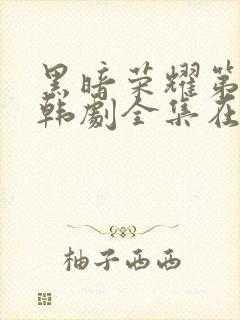 黑暗荣耀第
韩剧全集在
柚子西西